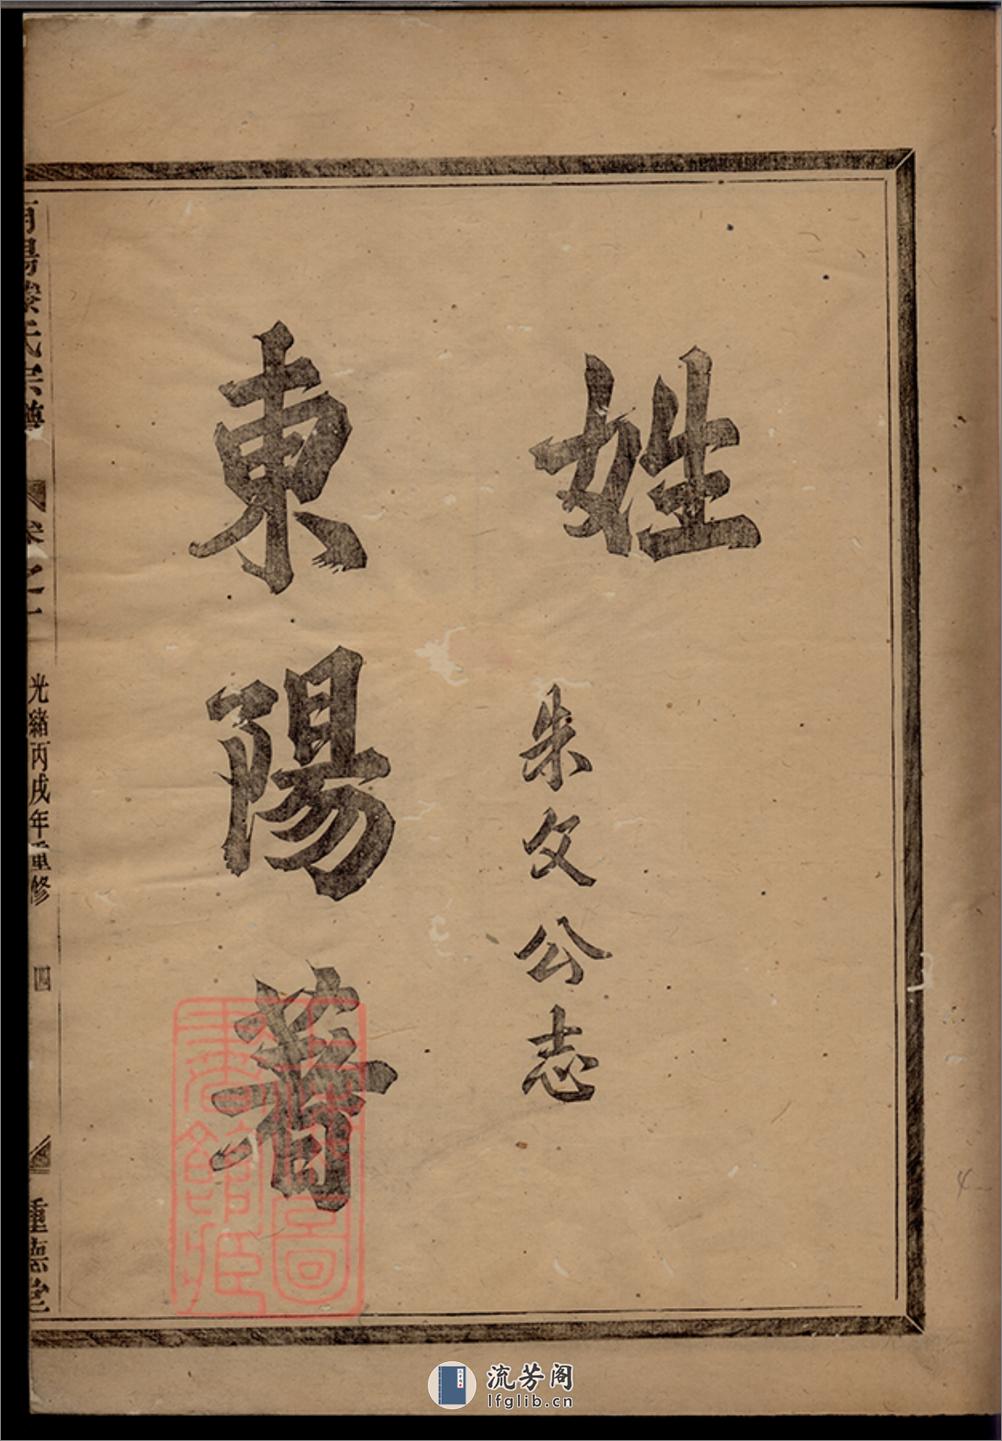 姓
朱文公志
東陽著
南陽滕氏宗譜 卷之一 光緒丙戌年重修 四 種德堂
上海圖
書館藏
流芳阁
lfglib.cn